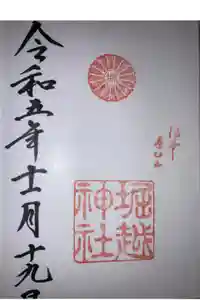 令和五年十一月十九日
堀越
神社